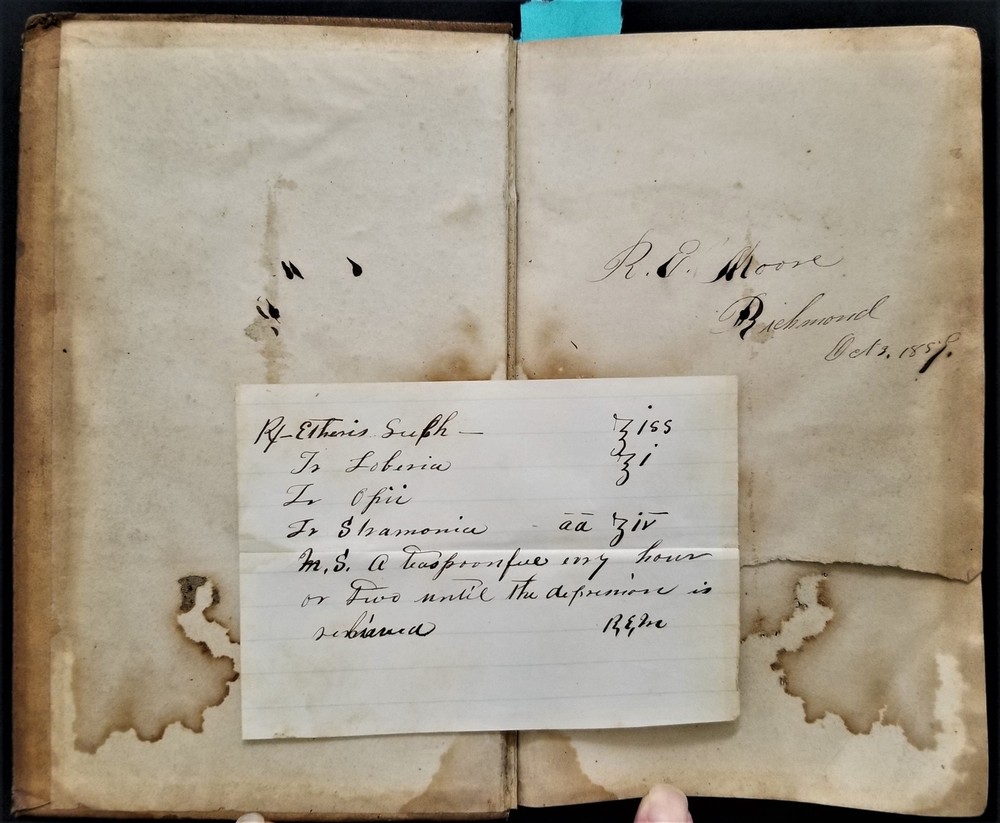 R. E. Moore
Richmond
Oct 3. 1859.
℞ - Etheris Sulph - ℥iss
Tr Lobelia ℥i
Tr Opii
Tr Stramonia āā ℥iv
M. S. A teaspoonful every hour
or two until the depression is
relieved R.E.M